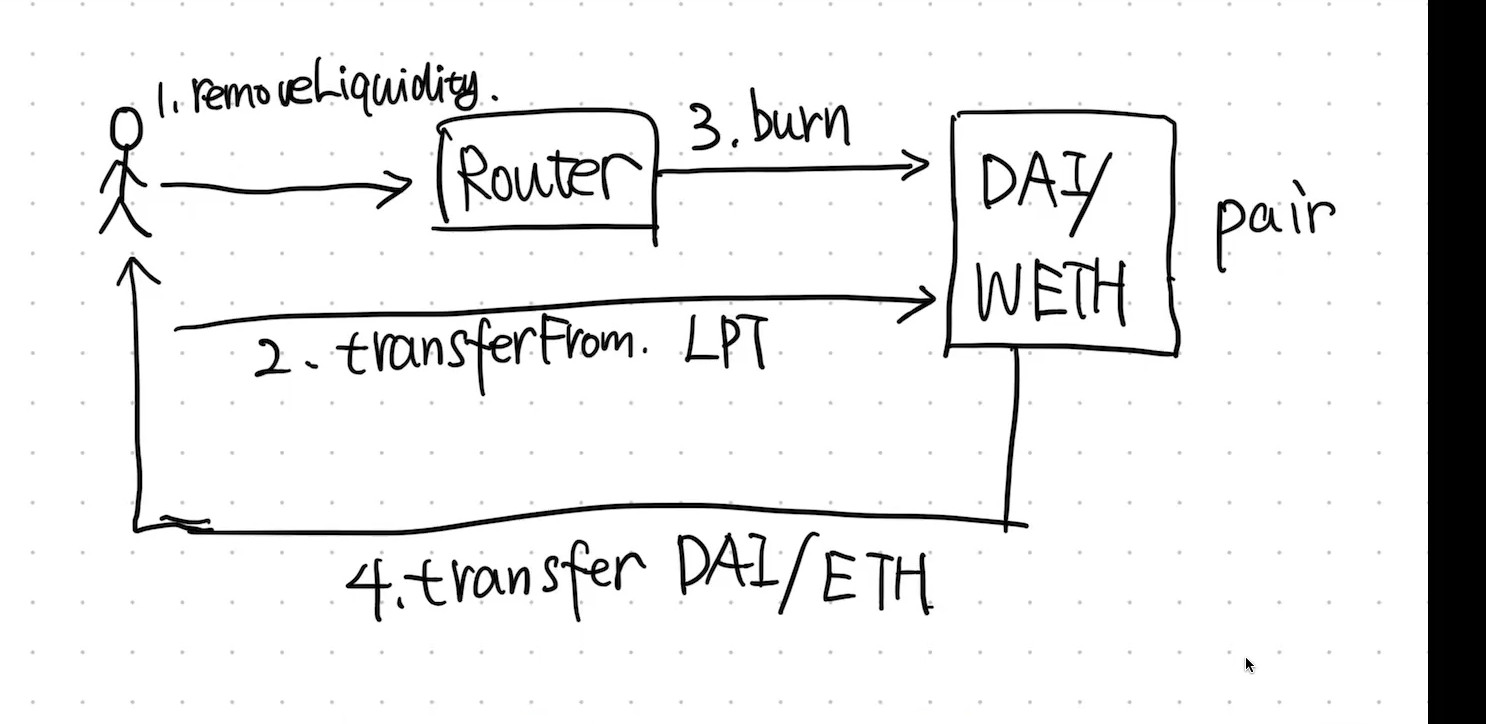 1. removeLiquidity.
Router
3. burn
DAI/
WETH
pair
2. transferFrom. LPT
4. transfer DAI/ETH